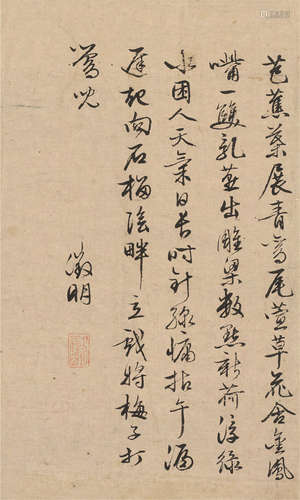 芭蕉葉展青鸞尾萱草花含金鳳
嘴一雙乳燕出雕梁數點新荷浮綠
水困人天氣日長時針線慵拈午漏
遲起向石榴陰畔立戲將梅子打
鶯兒
徵明